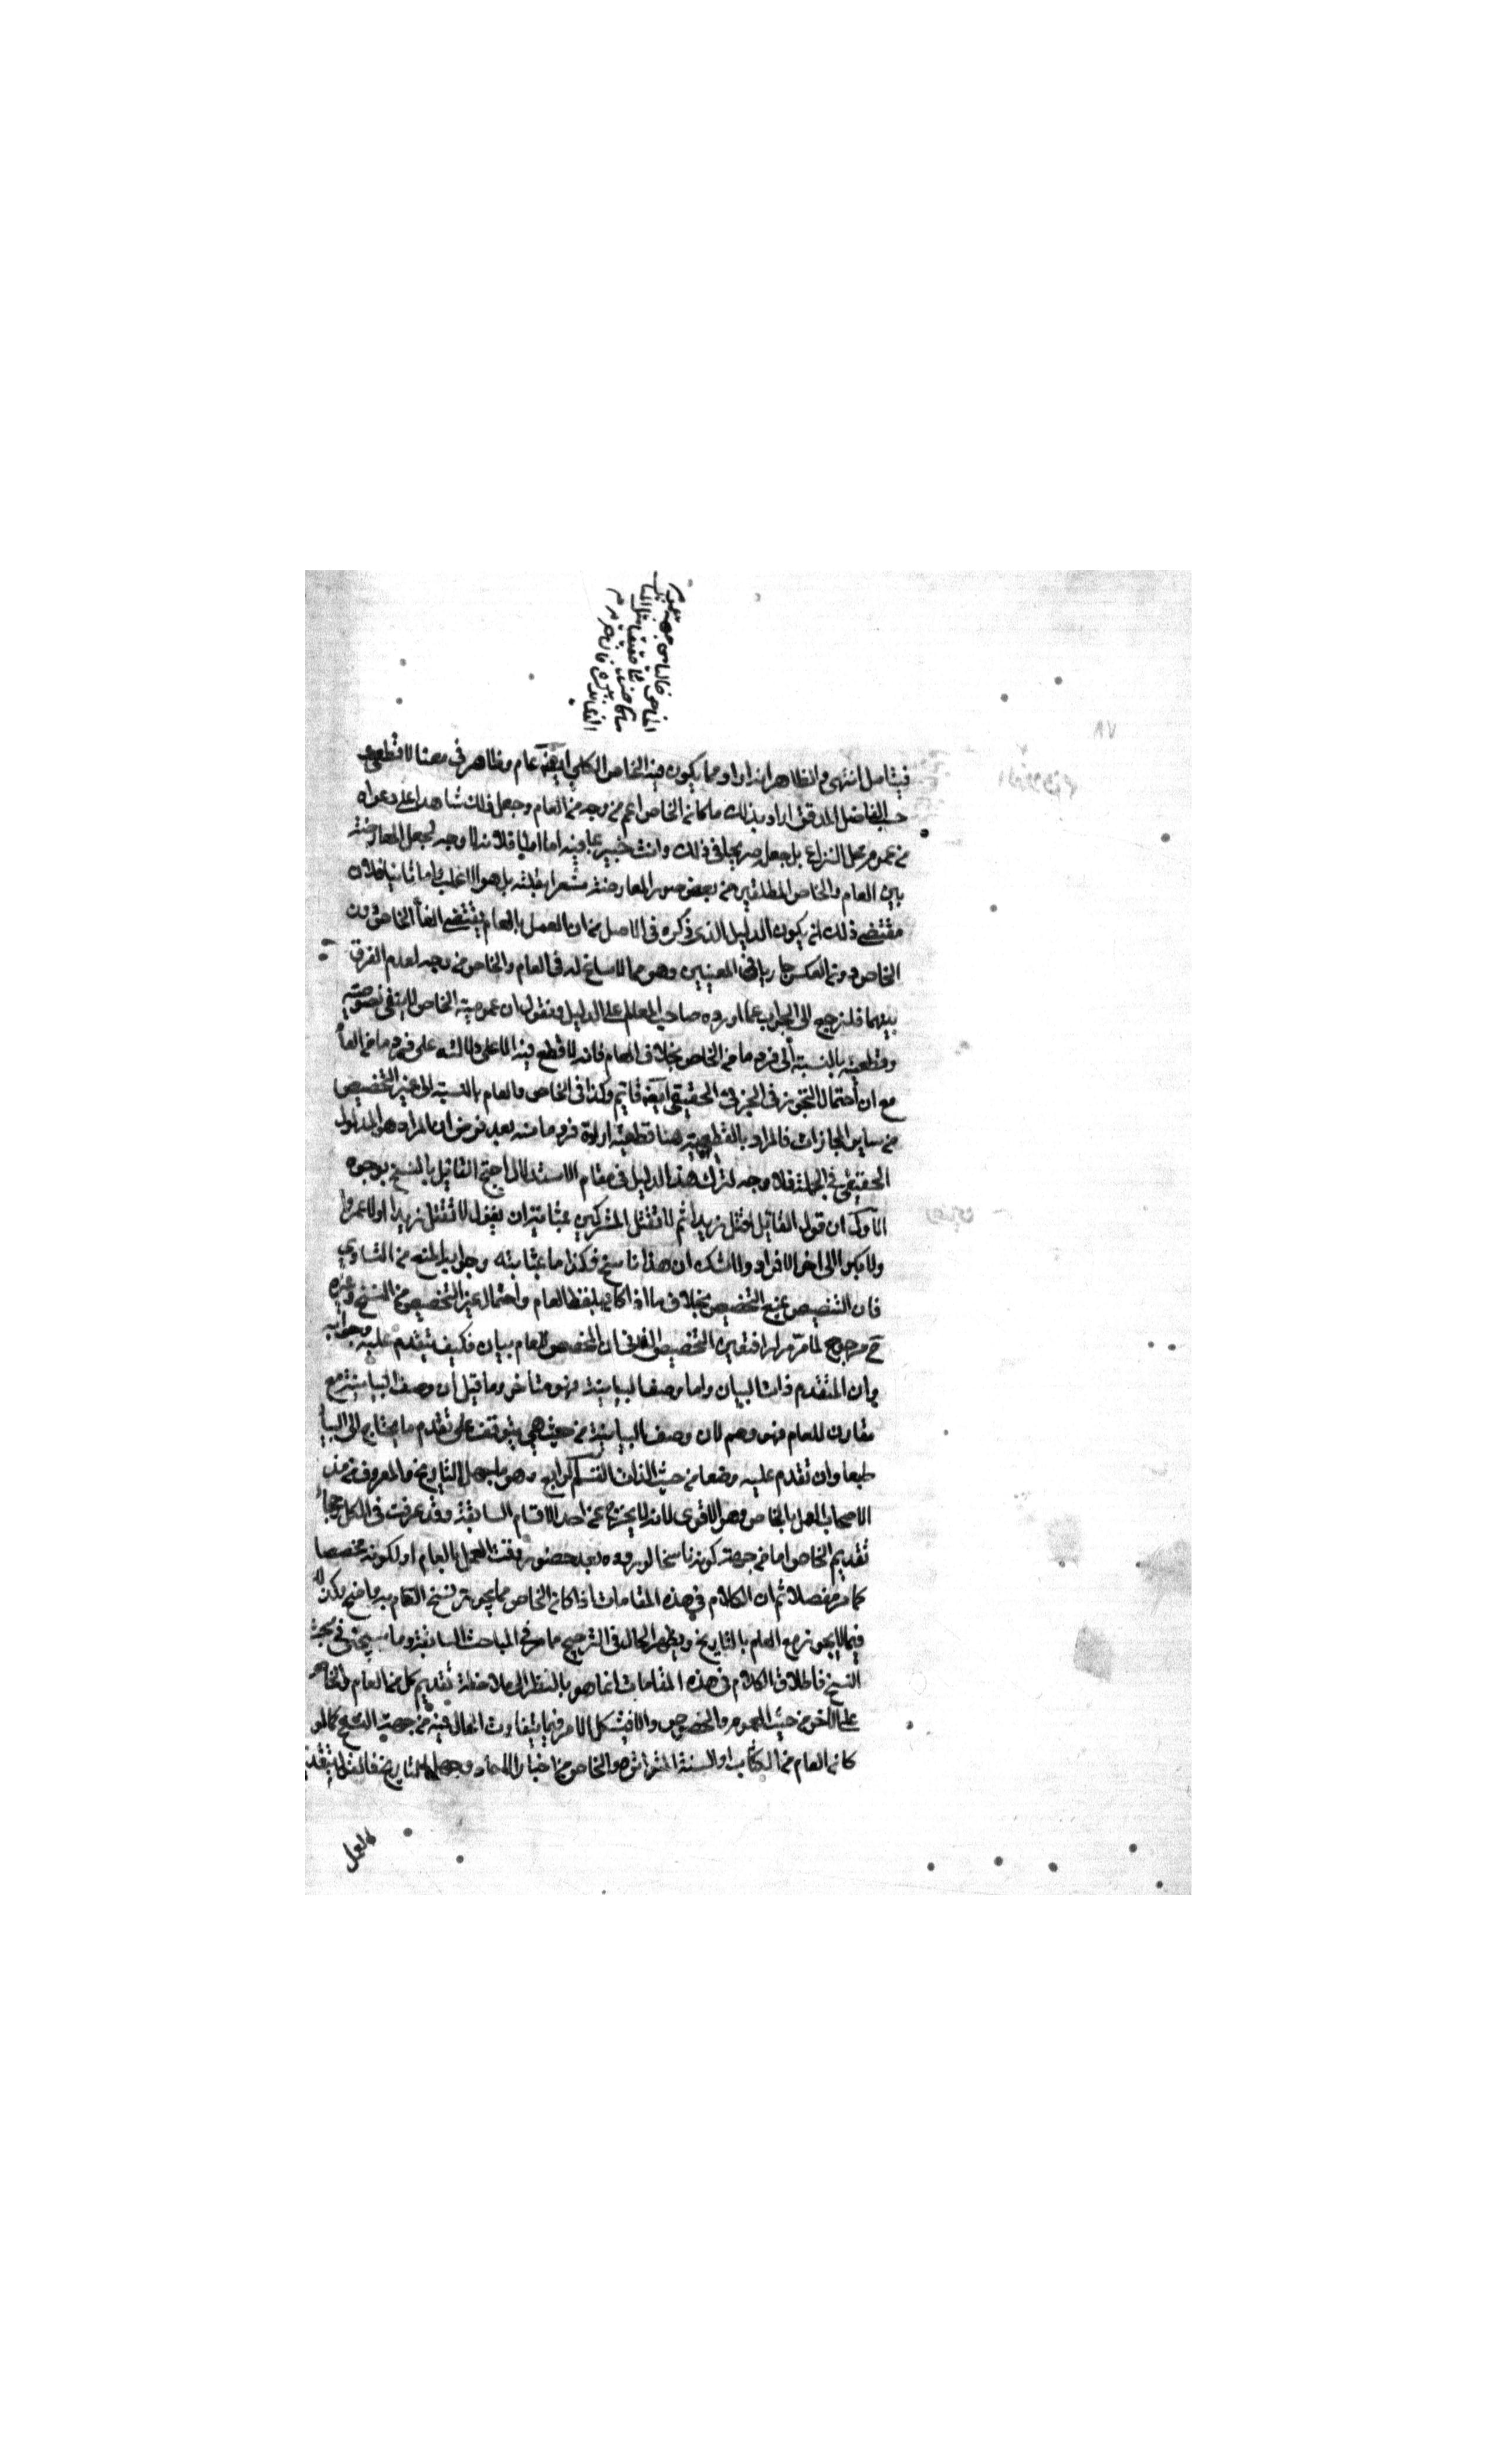 فيتامل انتهى والظاهر انه اراد مما يكون فيه الخاص الكلي ايضا عام وظاهر في معناه لا قطعي
حسب الفاضل المدقق اراد بذلك ما كان الخاص اعم من وجه من العام وجعل ذلك شاهدا على دعواه
من عموم محل النزاع بل جعله صريحا في ذلك وانت خبير بما فيه اما اولا فلانه لا وجه لجعل المعارضة
بين العام والخاص المطلقين من بعض صور المعارضة مشعرا بقلته بل هو الاغلب واما ثانيا فلان
مقتضى ذلك ان يكون الدليل الذي ذكره في الاصل من ان العمل بالعام يقتضي الغاء الخاص دون
الخاص دون العكس جاريا في المعنيين وهو مما لا مساغ له في العام والخاص من وجه لعدم الفرق
بينهما فلنرجع الى الجواب عما اورده صاحب المعالم على الدليل ونقول ان عمومية الخاص لا ينفي نصوصيته
وقطعيته بالنسبة الى فرد ما من الخاص بخلاف العام فانه لا قطع فيه الا على دلالته على فرد ما من العام
مع ان احتمال التجوز في الجزئي الحقيقي ايضا قائم وكذا في الخاص والعام بالنسبة الى غير التخصيص
من ساير المجازات فالمراد بالقطعية هنا قطعية ارادة فرد ما منه بعد فرض ان المراد هو المدلول
الحقيقي في الجملة فلا وجه لترك هذا الدليل في مقام الاستدلال احتج القائل بالنسخ بوجوه
الاول ان قول القائل اقتل زيدا ثم لا تقتل المشركين بمثابة ان يقول لا تقتل زيدا ولا عمروا
ولا بكرا الى اخر الافراد ولا شك ان هذا ناسخ فكذا ما بمثابته وجوابه المنع من التساوي
فان التنصيص يمنع التخصيص بخلاف ما اذا كان بلفظ العام واحتمال غير التخصيص من النسخ وغيره
مرجوح لما مر مرارا فتعين التخصيص الثاني ان المخصص للعام بيان فكيف يتقدم عليه وجوابه
ان المتقدم ذات البيان واما وصف البيانية فهو متاخر وما قيل ان وصف البيانية مع
مقارن للعام فهو وهم لان وصف البيانية من حيث هي يتوقف على تقدم ما يحتاج الى البيان
طبعا وان تقدم عليه وضعا من حيث الذات القسم الرابع وهو ما جهل التاريخ والمعروف من مذهب
الاصحاب العمل بالخاص وهو الاقوى لانه لا يخرج عن احد الاقسام السابقة وقد عرفت في الكل رجحان
تقديم الخاص اما من جهة كونه ناسخا لوروده بعد حضور وقت العمل بالعام او لكونه مخصصا
كما مر مفصلا ثم ان الكلام في هذه المقامات اذا كان الخاص مما يجوز نسخ العام به واضح
فيما لا يجوز مع العلم بالتاريخ ويظهر الحال في الترجيح ما مر في المباحث السابقة وما سيجئ في مبحث
النسخ فاطلاق الكلام في هذه المقامات انما هو بالنظر الى ملاحظة تقديم كل من العام والخاص
على الاخر من حيث العموم والخصوص والا فيشكل الامر فيما يتفاوت الحال فيه من جهة النسخ كما لو
كان العام من الكتاب او السنة المتواترة والخاص من اخبار الاحاد وجهل التاريخ
العمل